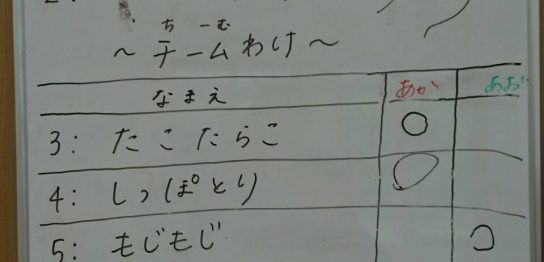 ちーむ
～チームわけ～
なまえ あか あお
3: たこたらこ ○
4: しっぽとり ○
5: もじもじ ○